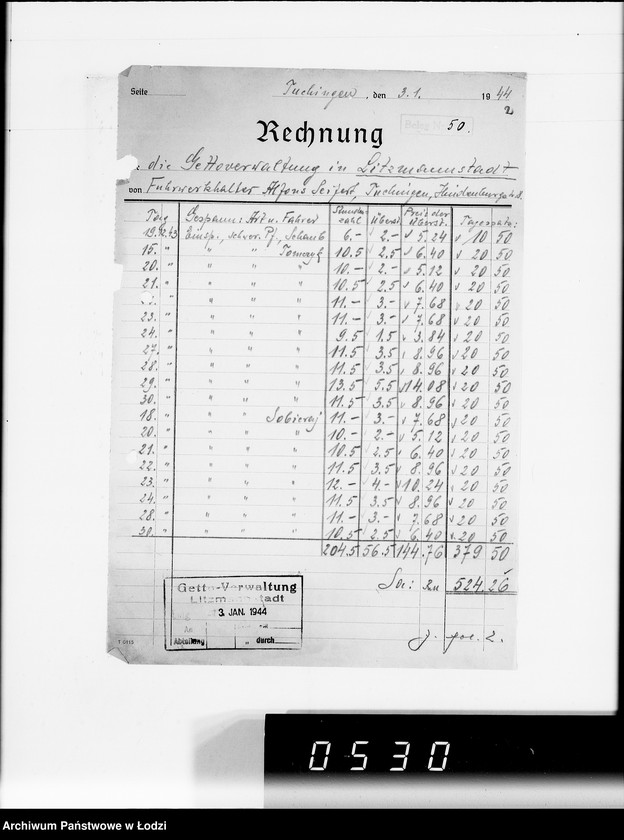 Seite Tuchingen, den 3.1. 1944
2
Beleg Nr. 50.
Rechnung
die Gettoverwaltung in Litzmannstadt
von Fuhrwerkhalter Alfons Seifert, Tuchingen, Hindenburgstr.
Tag Gespann: Art u. Fahrer Stundenzahl Überst. Preis der Überst. Tagespreis:
19.12.43 Einsp., schwer. Pf., Schaub 6.- 2.- 5.24 10 50
15. " " " Tomczyk 10.5 2.5 6.40 20 50
20. " " " " 10.- 2.- 5.12 20 50
21. " " " " 10.5 2.5 6.40 20 50
" " " " 11.- 3.- 7.68 20 50
23. " " " " 11.- 3.- 7.68 20 50
24. " " " " 9.5 1.5 3.84 20 50
27. " " " " 11.5 3.5 8.96 20 50
28. " " " " 11.5 3.5 8.96 20 50
29. " " " " 13.5 5.5 14.08 20 50
30. " " " " 11.5 3.5 8.96 20 50
18. " " " Sobieraj 11.- 3.- 7.68 20 50
20. " " " " 10.- 2.- 5.12 20 50
21. " " " " 10.5 2.5 6.40 20 50
22. " " " " 11.5 3.5 8.96 20 50
23. " " " " 12.- 4.- 10.24 20 50
24. " " " " 11.5 3.5 8.96 20 50
28. " " " " 11.- 3.- 7.68 20 50
30. " " " " 10.5 2.5 6.40 20 50
204.5 56.5 144.76 379 50
Sa: RM 524.26
Getto-Verwaltung
Litzmannstadt
3. JAN. 1944
An
Abteilung durch
0530
Archiwum Państwowe w Łodzi